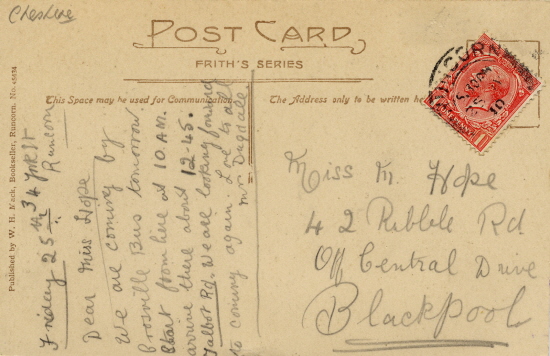 Cheshire
POST CARD
FRITH'S SERIES
This Space may be used for Communication
The Address only to be written here
Published by W. H. Mack, Bookseller, Runcorn. No.
34 York St
Runcorn
Friday 25th
Dear Miss Hope
We are coming by
Crosville Bus tomorrow.
Start from here at 10 A.M.
arrive there about 12.45.
Talbot Rd. We are looking forward
to coming again. Love to all
Mr Dugdale
RUNCORN
Miss M. Hope
42 Ribble Rd
Off Central Drive
Blackpool